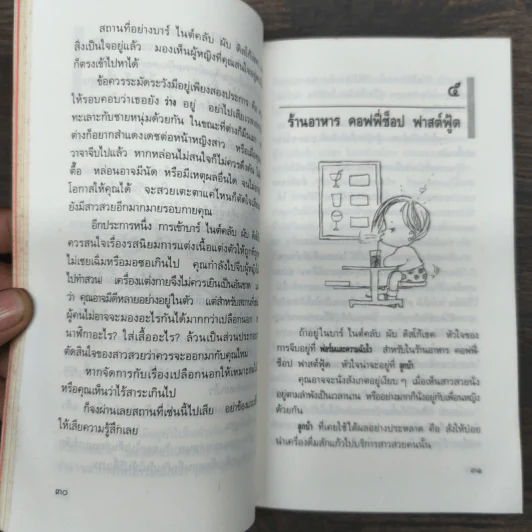 สถานที่อย่างบาร์ ไนต์คลับ ผับ ดิสโก้เธค
สิงเป็นใจอยู่แล้ว มองเห็นผู้หญิงที่คุณสนใจ
ก็ตรงเข้าไปหาได้
ข้อควรระมัดระวังมีอยู่เพียงสองประการ คือ
ให้รอบคอบว่าเธอยัง ว่าง อยู่ อย่าไป
ทะเลาะกับชายหนุ่มด้วยกัน ในขณะที่ต่างก็
ต่างก็อยากสำแดงเดชต่อหน้าหญิงสาว หรือเมื่อ
วาจาจีบไปแล้ว หากหล่อนไม่สนใจก็ไม่ควรดึงดัน
ตื้อ หล่อนอาจมีนัด หรือมีเหตุผลอื่นใด
โอกาสให้คุณได้ จะสวยเตะตาแค่ไหนก็ตัดใจ
ยังมีสาวสวยอีกมากมายรอบกายคุณ
อีกประการหนึ่ง การเข้าบาร์ ไนต์คลับ ผับ
ควรสนใจเรื่องรสนิยมการแต่งเนื้อแต่งตัวให้
ไม่เชยเฉิ่มหรือมอซอเกินไป คุณกำลังไปจีบ
ไปทำสวน! เครื่องแต่งกายจึงไม่ควรเย็นเป็นอันขาด
ว่า คุณอาจมีดีหลายอย่างอยู่ในตัว แต่สำหรับ
ผู้คนไม่อาจจะมองอะไรกันได้มากกว่าเปลือกนอก
นาฬิกาอะไร? ใส่เสื้ออะไร? ล้วนเป็นส่วน
ตัดสินใจของสาวสวยว่าควรจะออกมากับคุณไหม
หากจัดการกับเรื่องเปลือกนอกให้เหมาะสม
หรือคุณเห็นว่าไร้สาระเกินไป
ก็จงผ่านเลยสถานที่เช่นนี้ไปเสีย อย่า
ให้เสียความรู้สึกเลย
๓๐
๕
ร้านอาหาร คอฟฟี่ช็อป ฟาสต์ฟู้ด
ถ้าอยู่ในบาร์ ไนต์คลับ ผับ ดิสโก้เธค หัวใจของ
การจีบอยู่ที่ ฟอร์มและความฉับไว สำหรับในร้านอาหาร คอฟฟี่
ช็อป ฟาสต์ฟู้ด หัวใจน่าจะอยู่ที่ ลูกบ้า
คุณอาจจะนั่งสังเกตอยู่เงียบ ๆ เมื่อเห็นสาวสวยนั่ง
อยู่ตามลำพังเป็นเวลานาน หรืออย่างมากก็นั่งอยู่กับเพื่อนหญิง
ด้วยกัน
ลูกบ้า ที่เคยใช้ได้ผลอย่างประหลาด คือ สั่งให้บ๋อย
นำเครื่องดื่มสักแก้วไปบริการสาวสวยคนนั้น
๓๑